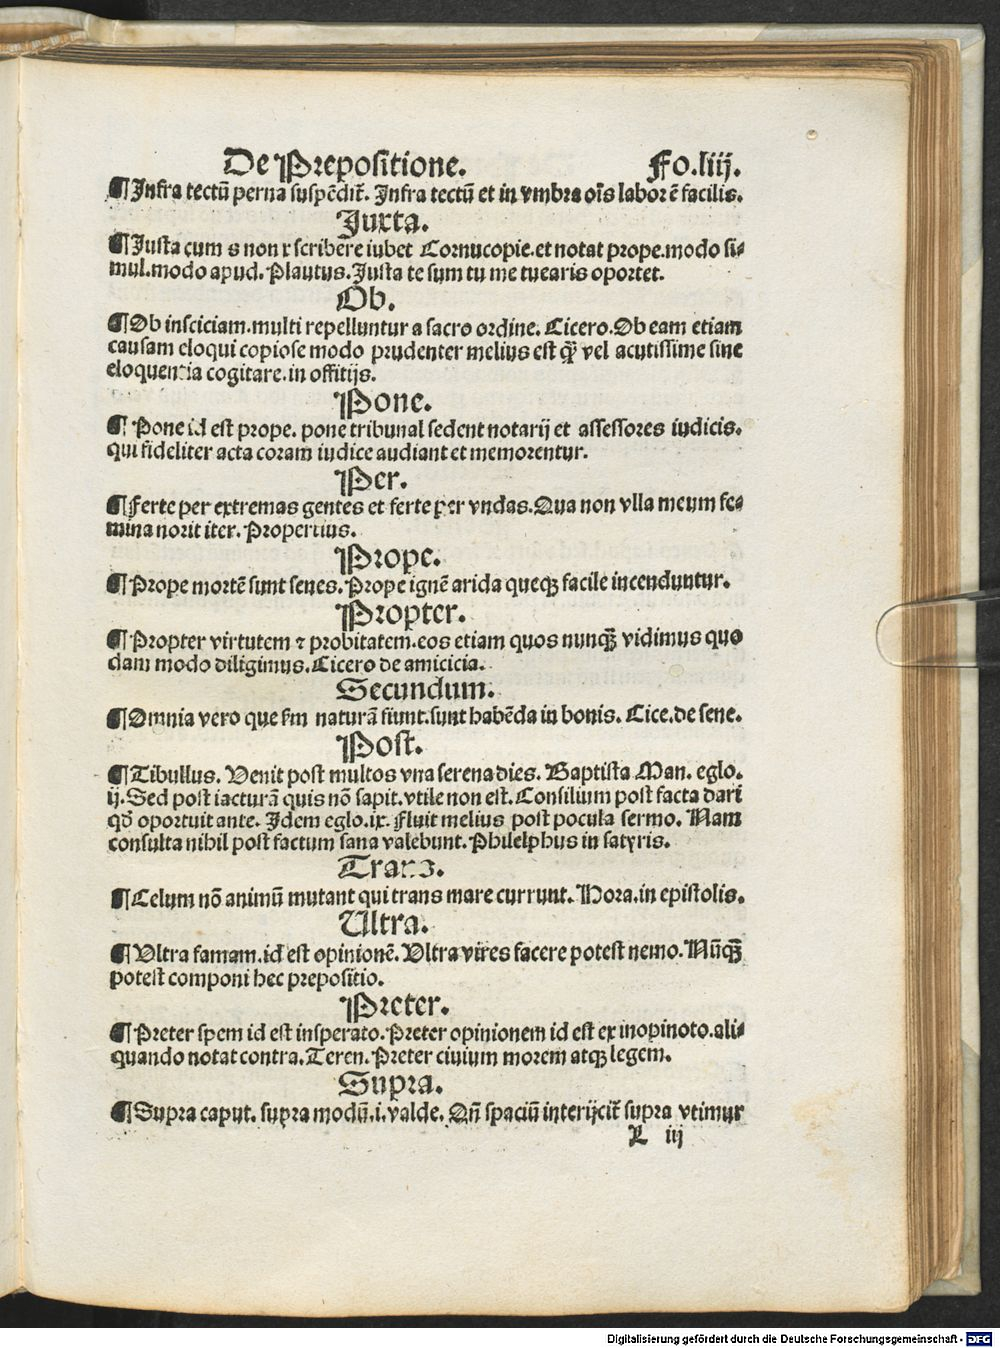 De Prepositione. Fo.liij.
¶Infra tectū perna suspēdit̄. Infra tectū et in vmbra oīs labor ē facilis.
Juxta.
¶Justa cum s non x scribere iubet Cornucopie.et notat prope.modo si-
mul.modo apud. Plautus.Justa te sum tu me tuearis oportet.
Ob.
¶Ob insciciam.multi repelluntur a sacro ordine. Cicero.Ob eam etiam
causam eloqui copiose modo prudenter melius est qȝ̄ vel acutissime sine
eloquentia cogitare.in offitijs.
Pone.
¶Pone id est prope. pone tribunal sedent notarij et assessores iudicis.
qui fideliter acta coram iudice audiant et memorentur.
Per.
¶Ferte per extremas gentes et ferte per vndas.Qua non vlla meum fe-
mina norit iter. Propertius.
Prope.
¶Prope mortē sunt senes. Prope ignē arida queqȝ facile incenduntur.
Propter.
¶Propter virtutem ⁊ probitatem.eos etiam quos nunqȝ̄ vidimus quo
dam modo diligimus.Cicero de amicicia.
Secundum.
¶Omnia vero que ẜm naturā fiunt.sunt habēda in bonis. Cice.de sene.
Post.
¶Tibullus. Venit post multos vna serena dies. Baptista Man. eglo.
ij. Sed post iacturā quis nō sapit.vtile non est. Consilium post facta dari
qd̄ oportuit ante. Idem eglo.ix. Fluit melius post pocula sermo. Nam
consulta nihil post factum sana valebunt. Philelphus in satyris.
Trans.
¶Celum nō animū mutant qui trans mare currunt. Hora.in epistolis.
Ultra.
¶Vltra famam.id est opinionē. Vltra vires facere potest nemo. Nūqȝ̄
potest componi hec prepositio.
Preter.
¶Preter spem id est insperato.Preter opinionem id est ex inopinoto.ali-
quando notat contra.Teren.Preter ciuium morem atqȝ legem.
Supra.
¶Supra caput. supra modū.i.valde. Qn̄ spaciū interijcit̄ supra vtimur
iij
Digitalisierung gefördert durch die Deutsche Forschungsgemeinschaft - DFG